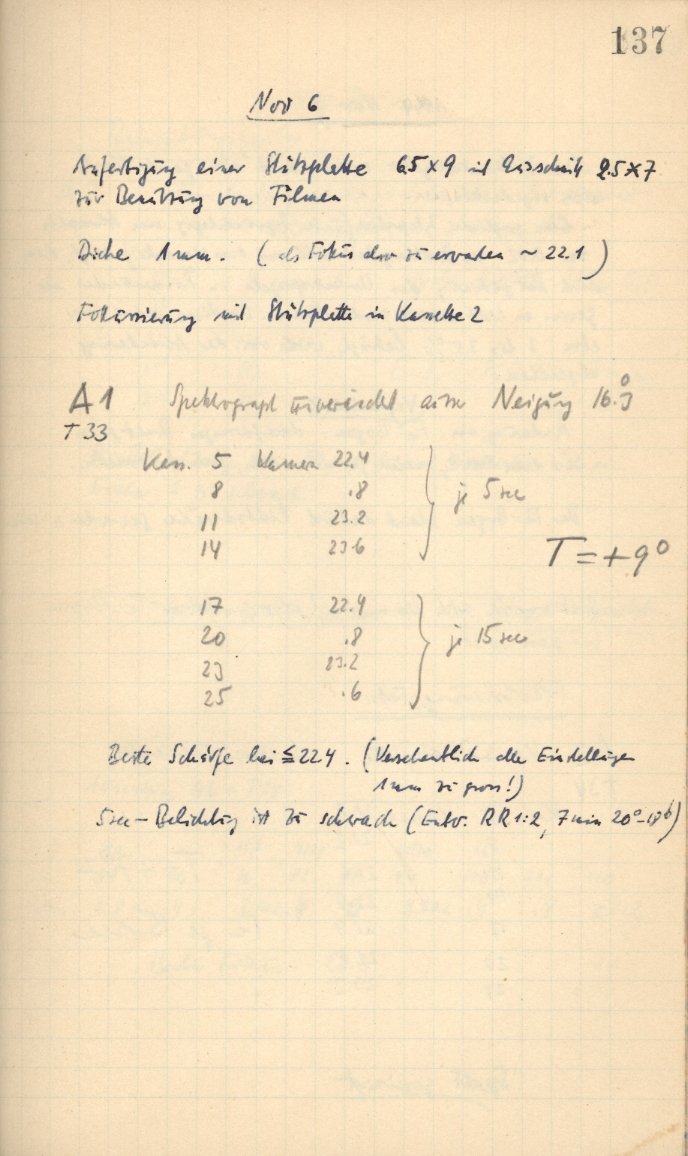 137
Nov 6
Anfertigung einer Stützplatte 6.5 × 9 mit Ausschnitt 2.5 × 7
zur Benützung von Filmen
Dicke 1 mm. (als Fokus also zu erwarten ~ 22.1)
Fokussierung mit Stützplatte in Kassette 2
A1 Spektrograph Neigung 16.°3
T 33
Kass. 5 Kamera 22.4
8 .8
11 23.2
14 23.6
je 5 sec
T = +9°
17 22.4
20 .8
23 23.2
25 .6
je 15 sec
Beste Schärfe bei ≦ 22.4. (Versehentlich alle Einstellungen
1 mm zu gross!)
5 sec – Belichtung ist zu schwach (Entw. RR 1:2, 7 min 20°–